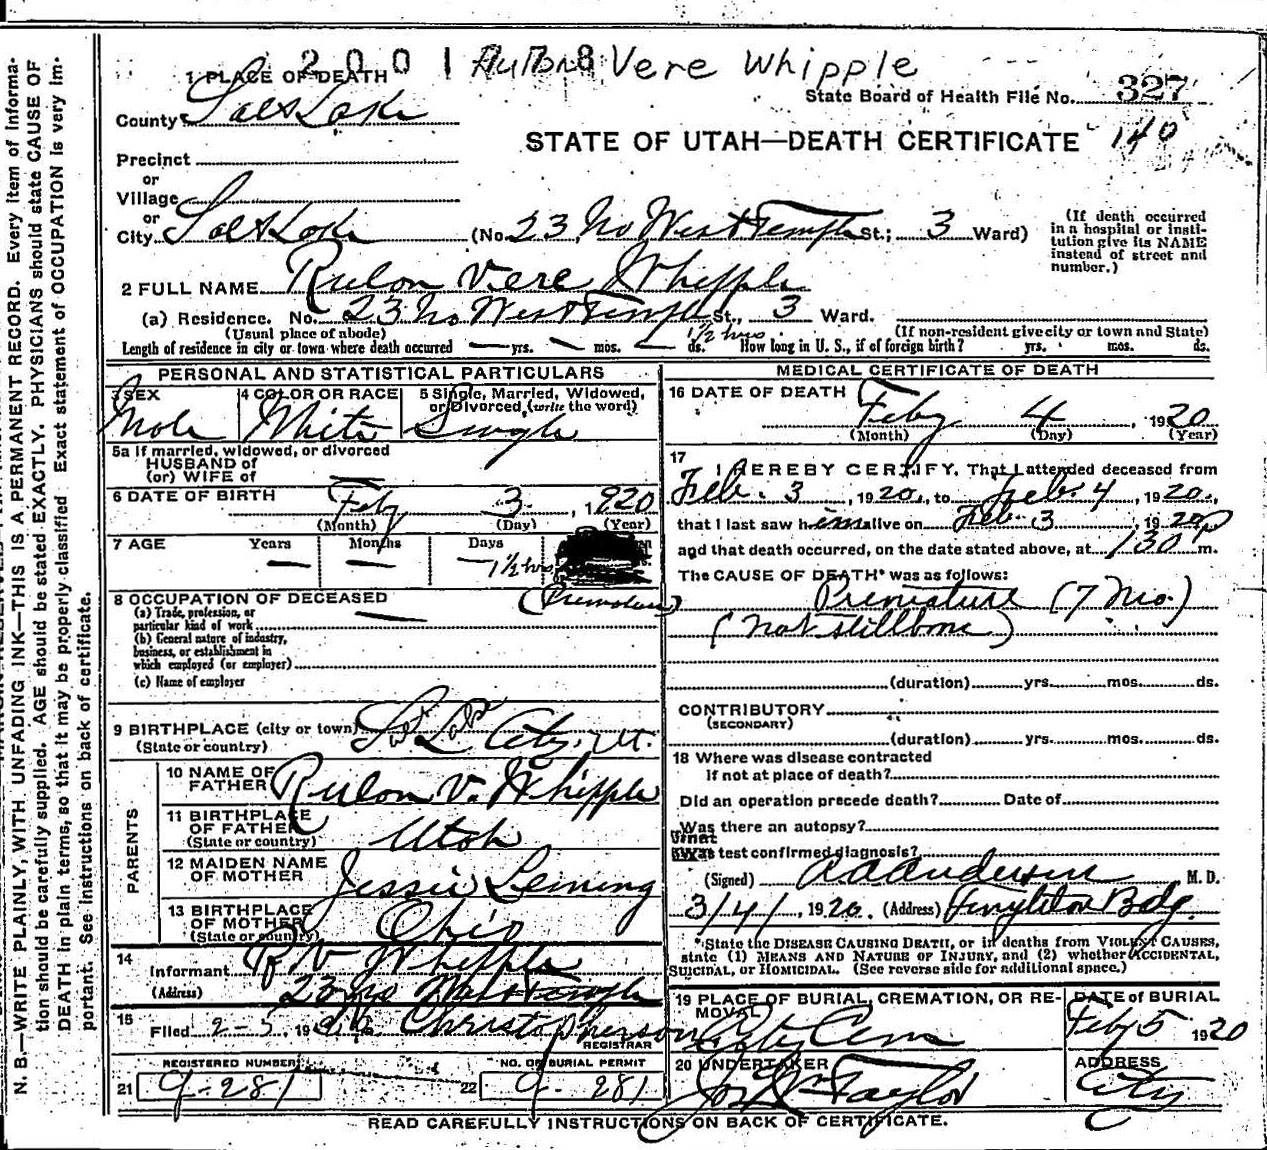 2001 78 Rulon Vere Whipple
1 PLACE OF DEATH
State Board of Health File No. 327
County Salt Lake
STATE OF UTAH—DEATH CERTIFICATE 140
Precinct
or
Village
or
City Salt Lake (No. 23 No West Temple St.; 3 Ward)
(If death occurred in a hospital or insti-
tution give its NAME
instead of street and
number.)
2 FULL NAME Rulon Vere Whipple
(a) Residence. No. 23 No West Temple St., 3 Ward.
(Usual place of abode) (If non-resident give city or town and State)
Length of residence in city or town where death occurred — yrs. — mos. — ds. 1½ hrs How long in U. S., if of foreign birth? yrs. mos. ds.
PERSONAL AND STATISTICAL PARTICULARS
3 SEX Male
4 COLOR OR RACE White
5 Single, Married, Widowed,
or Divorced, (write the word)
Single
5a If married, widowed, or divorced
HUSBAND of
(or) WIFE of
6 DATE OF BIRTH Feby 3, 1920
(Month) (Day) (Year)
7 AGE Years — Months — Days — 1½ hrs
8 OCCUPATION OF DECEASED (Premature)
(a) Trade, profession, or
particular kind of work —
(b) General nature of industry,
business, or establishment in
which employed (or employer)
(c) Name of employer
9 BIRTHPLACE (city or town) Salt Lake City, Ut.
(State or country)
PARENTS
10 NAME OF
FATHER Rulon V. Whipple
11 BIRTHPLACE
OF FATHER
(State or country) Utah
12 MAIDEN NAME
OF MOTHER Jessie Leming
13 BIRTHPLACE
OF MOTHER
(State or country) Ohio
14
Informant R V Whipple
(Address) 23 No West Temple
15
Filed 2-5, 19 Christopherson
REGISTRAR
REGISTERED NUMBER
21 9-281
NO. OF BURIAL PERMIT
22 9-281
MEDICAL CERTIFICATE OF DEATH
16 DATE OF DEATH
Feby 4, 1920
(Month) (Day) (Year)
17
I HEREBY CERTIFY, That I attended deceased from
Feb. 3, 1920, to Feb. 4, 1920,
that I last saw him alive on Feb. 3, 1920
and that death occurred, on the date stated above, at 130 P m.
The CAUSE OF DEATH* was as follows:
Premature (7 Mo.)
(not stillborn)
(duration) yrs. mos. ds.
CONTRIBUTORY
(SECONDARY)
(duration) yrs. mos. ds.
18 Where was disease contracted
If not at place of death?
Did an operation precede death? Date of
Was there an autopsy?
What test confirmed diagnosis?
(Signed) Anderson M. D.
3/4/, 1920. (Address) Templeton Bdg.
*State the DISEASE CAUSING DEATH, or in deaths from VIOLENT CAUSES,
state (1) MEANS AND NATURE OF INJURY, and (2) whether ACCIDENTAL,
SUICIDAL, or HOMICIDAL. (See reverse side for additional space.)
19 PLACE OF BURIAL, CREMATION, OR RE-
MOVAL City Cem
DATE of BURIAL
Feby 5 1920
20 UNDERTAKER
Jos Wm Taylor
ADDRESS
City
READ CAREFULLY INSTRUCTIONS ON BACK OF CERTIFICATE.
N. B.—WRITE PLAINLY, WITH UNFADING INK—THIS IS A PERMANENT RECORD. Every item of informa-
tion should be carefully supplied. AGE should be stated EXACTLY. PHYSICIANS should state CAUSE OF
DEATH in plain terms, so that it may be properly classified. Exact statement of OCCUPATION is very im-
portant. See instructions on back of certificate.